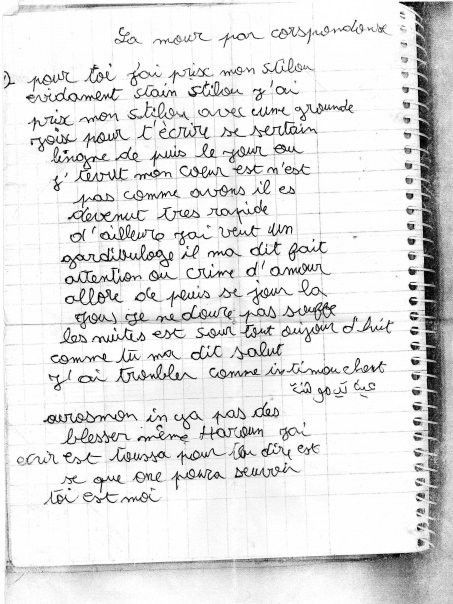 La mour par corspondonse
pour toi j'ai prix mon stilou
evidament stain stilou j'ai
prix mon stilou avec cume grounde
joix pour t'écrire se sertain
lingne de puis le jour ou
j' tevut mon coeur est n'est
pas comme avons il es
devenut tres rapide
d'ailleurs j'ai veut un
gardibuloge il ma dit fait
attention ou crime d'amour
allore de peuis se jour la
jous je ne doure pas souffe
les nuites est sour tout oujour d'hüt
comme tu ma dit salut
j'ai troubler comme in timou chent
ourosmon in ya pas des
blesser même Haroun j'ai
ecrir est toussa pour tou dire est
se que one poura seuvoir
toi est moi